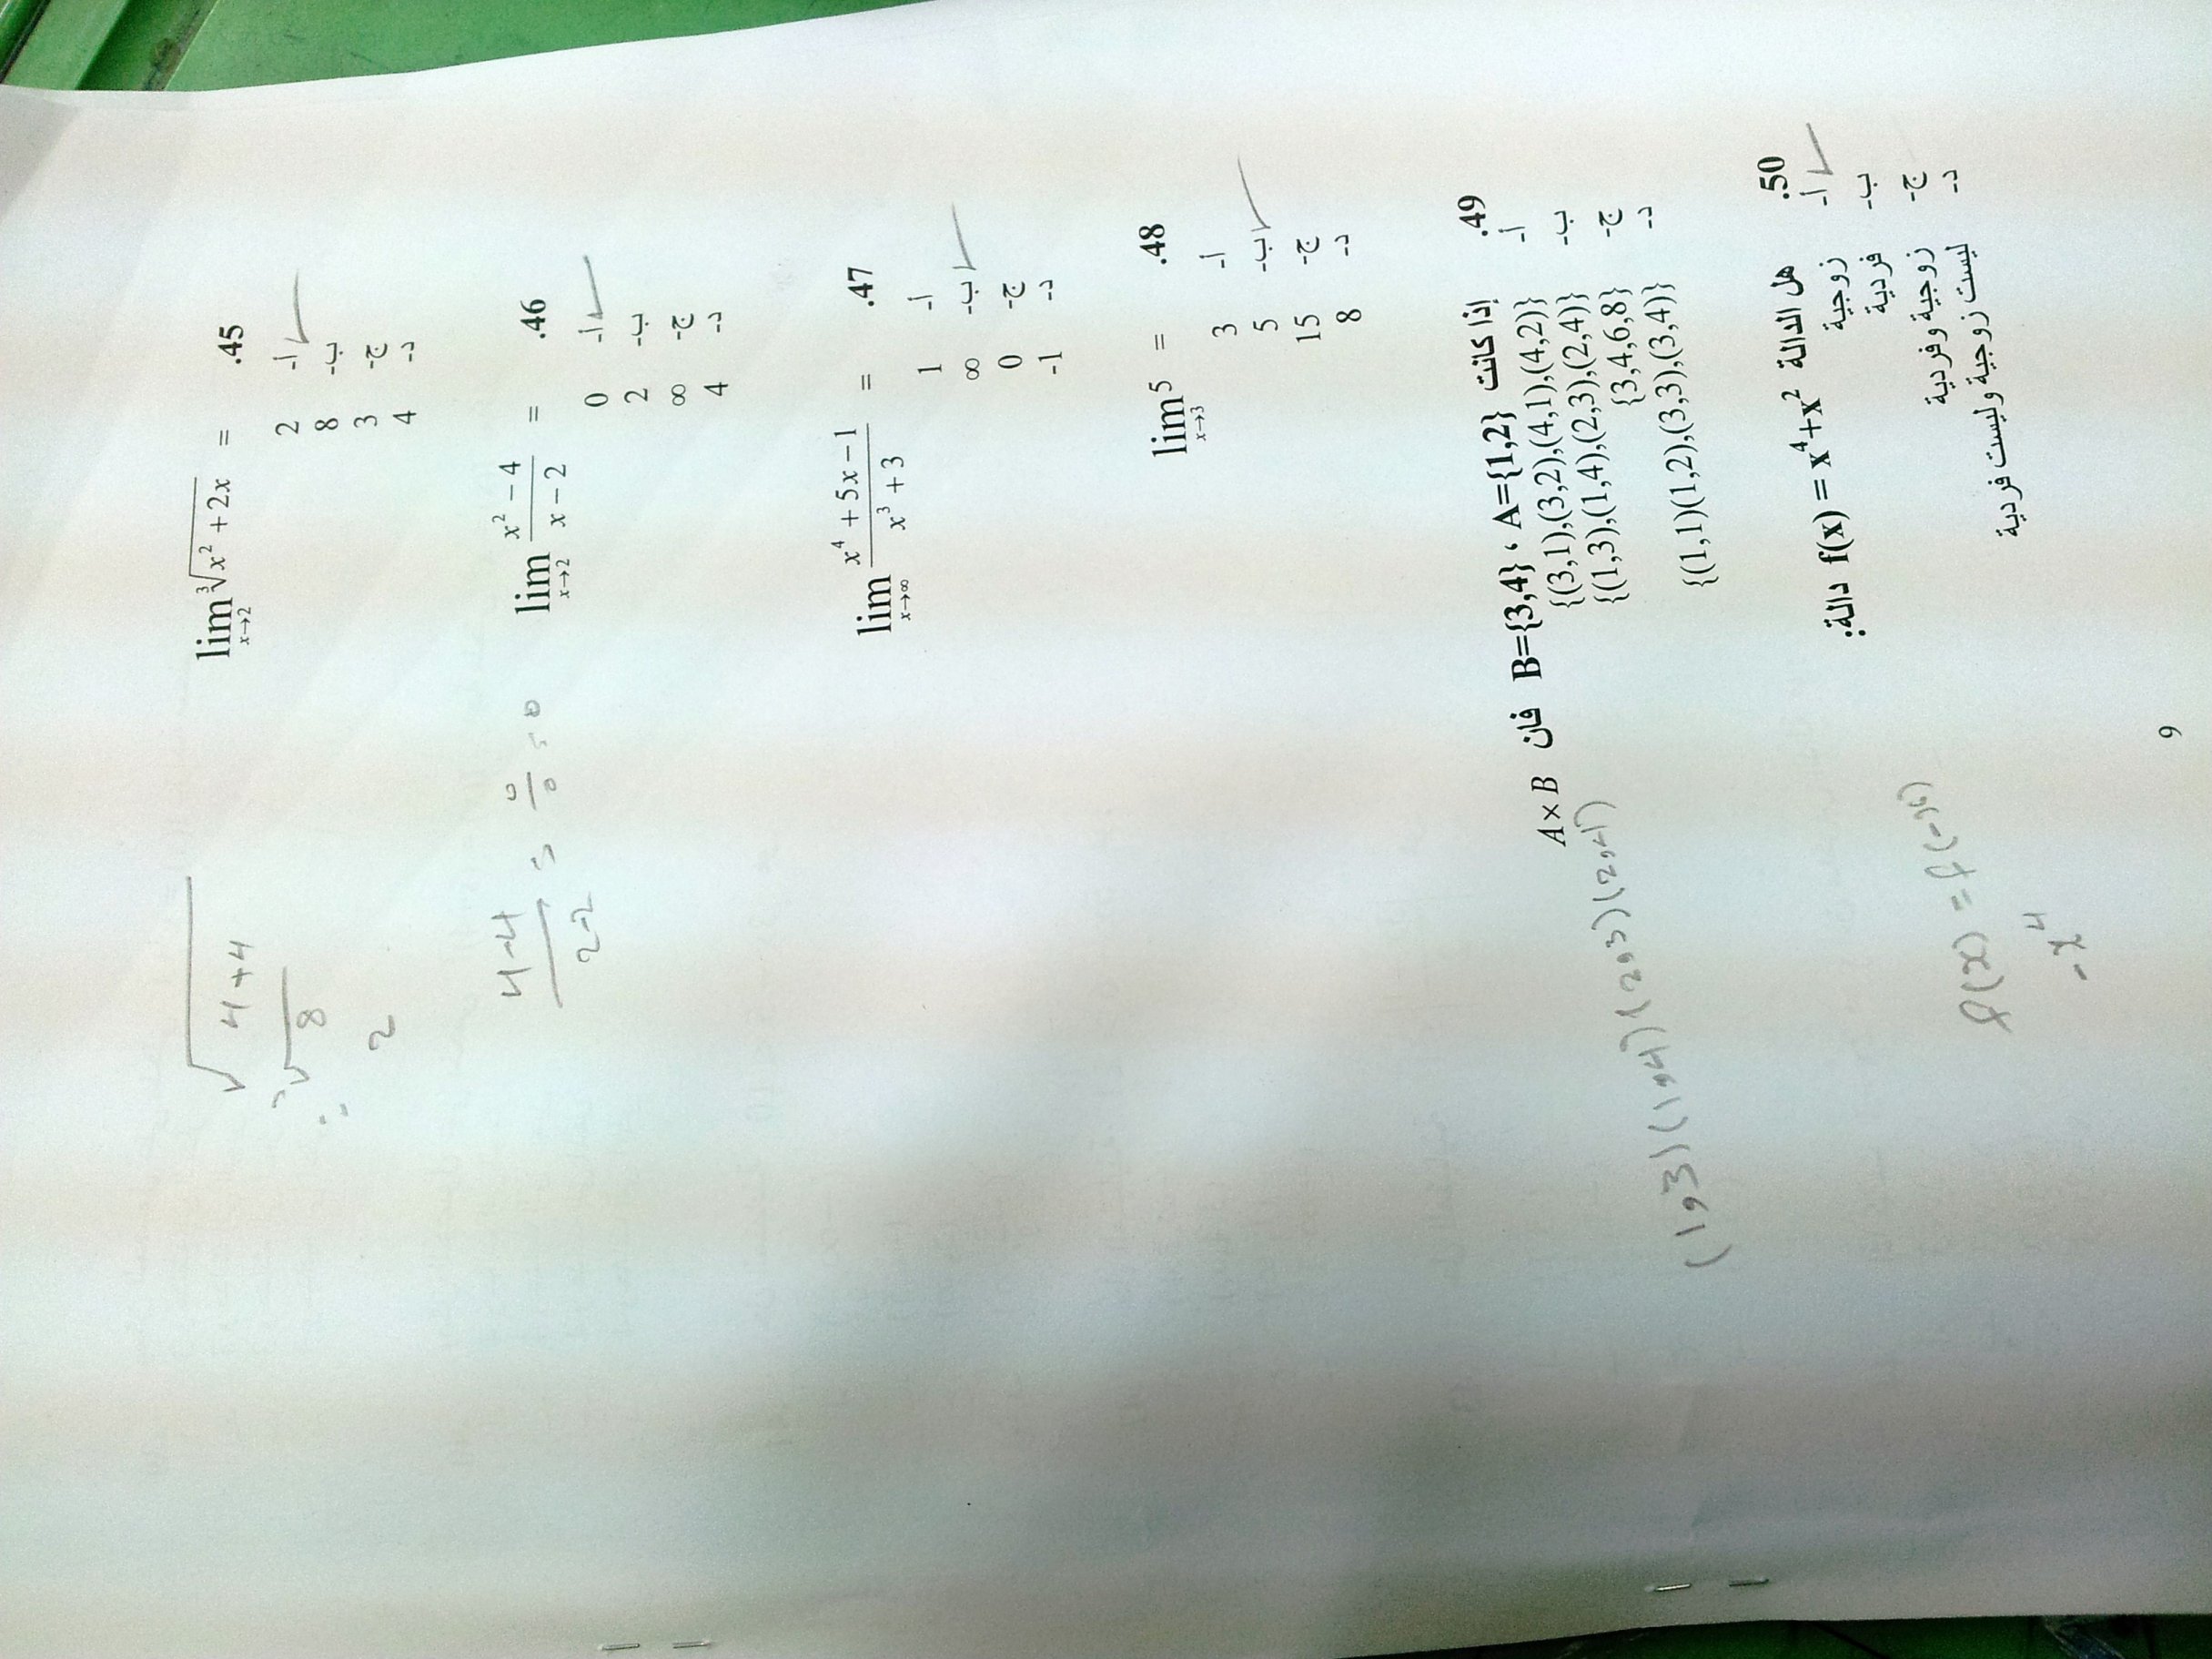 .45 $\lim_{x \to 2} \sqrt[3]{x^2 + 2x}$ =
أ- 2
ب- 8
ج- 3
د- 4
√4+4
³√8
= 2
.46 $\lim_{x \to 2} \frac{x^2 - 4}{x - 2}$ =
أ- 0
ب- 2
ج- ∞
د- 4
$\frac{4-4}{2-2}$ = $\frac{0}{0}$ = 0
.47 $\lim_{x \to \infty} \frac{x^4 + 5x - 1}{x^3 + 3}$ =
أ- 1
ب- ∞
ج- 0
د- -1
.48 $\lim_{x \to 3} 5$ =
أ- 3
ب- 5
ج- 15
د- 8
.49 إذا كانت A={1,2} ، B={3,4} فان A×B
أ- {(3,1),(3,2),(4,1),(4,2)}
ب- {(1,3),(1,4),(2,3),(2,4)}
ج- {3,4,6,8}
د- {(1,1)(1,2),(3,3),(3,4)}
(1,3)(1,4)(2,3)(2,4)
.50 هل الدالة f(x) = x⁴+x² دالة:
أ- زوجية
ب- فردية
ج- زوجية وفردية
د- ليست زوجية وليست فردية
f(x) = f(-x)
-x⁴
9